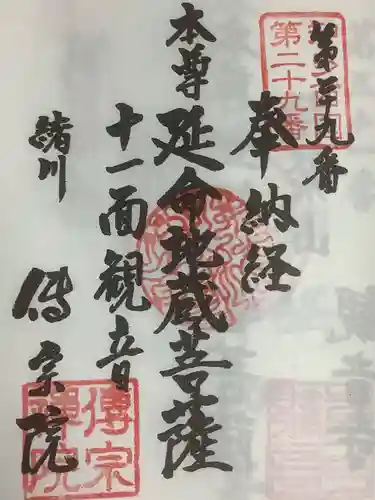 第廿九番
第二十九番
奉納経
本尊
延命地蔵菩薩
十一面観音
緒川
傳宗院
傳宗
禅院